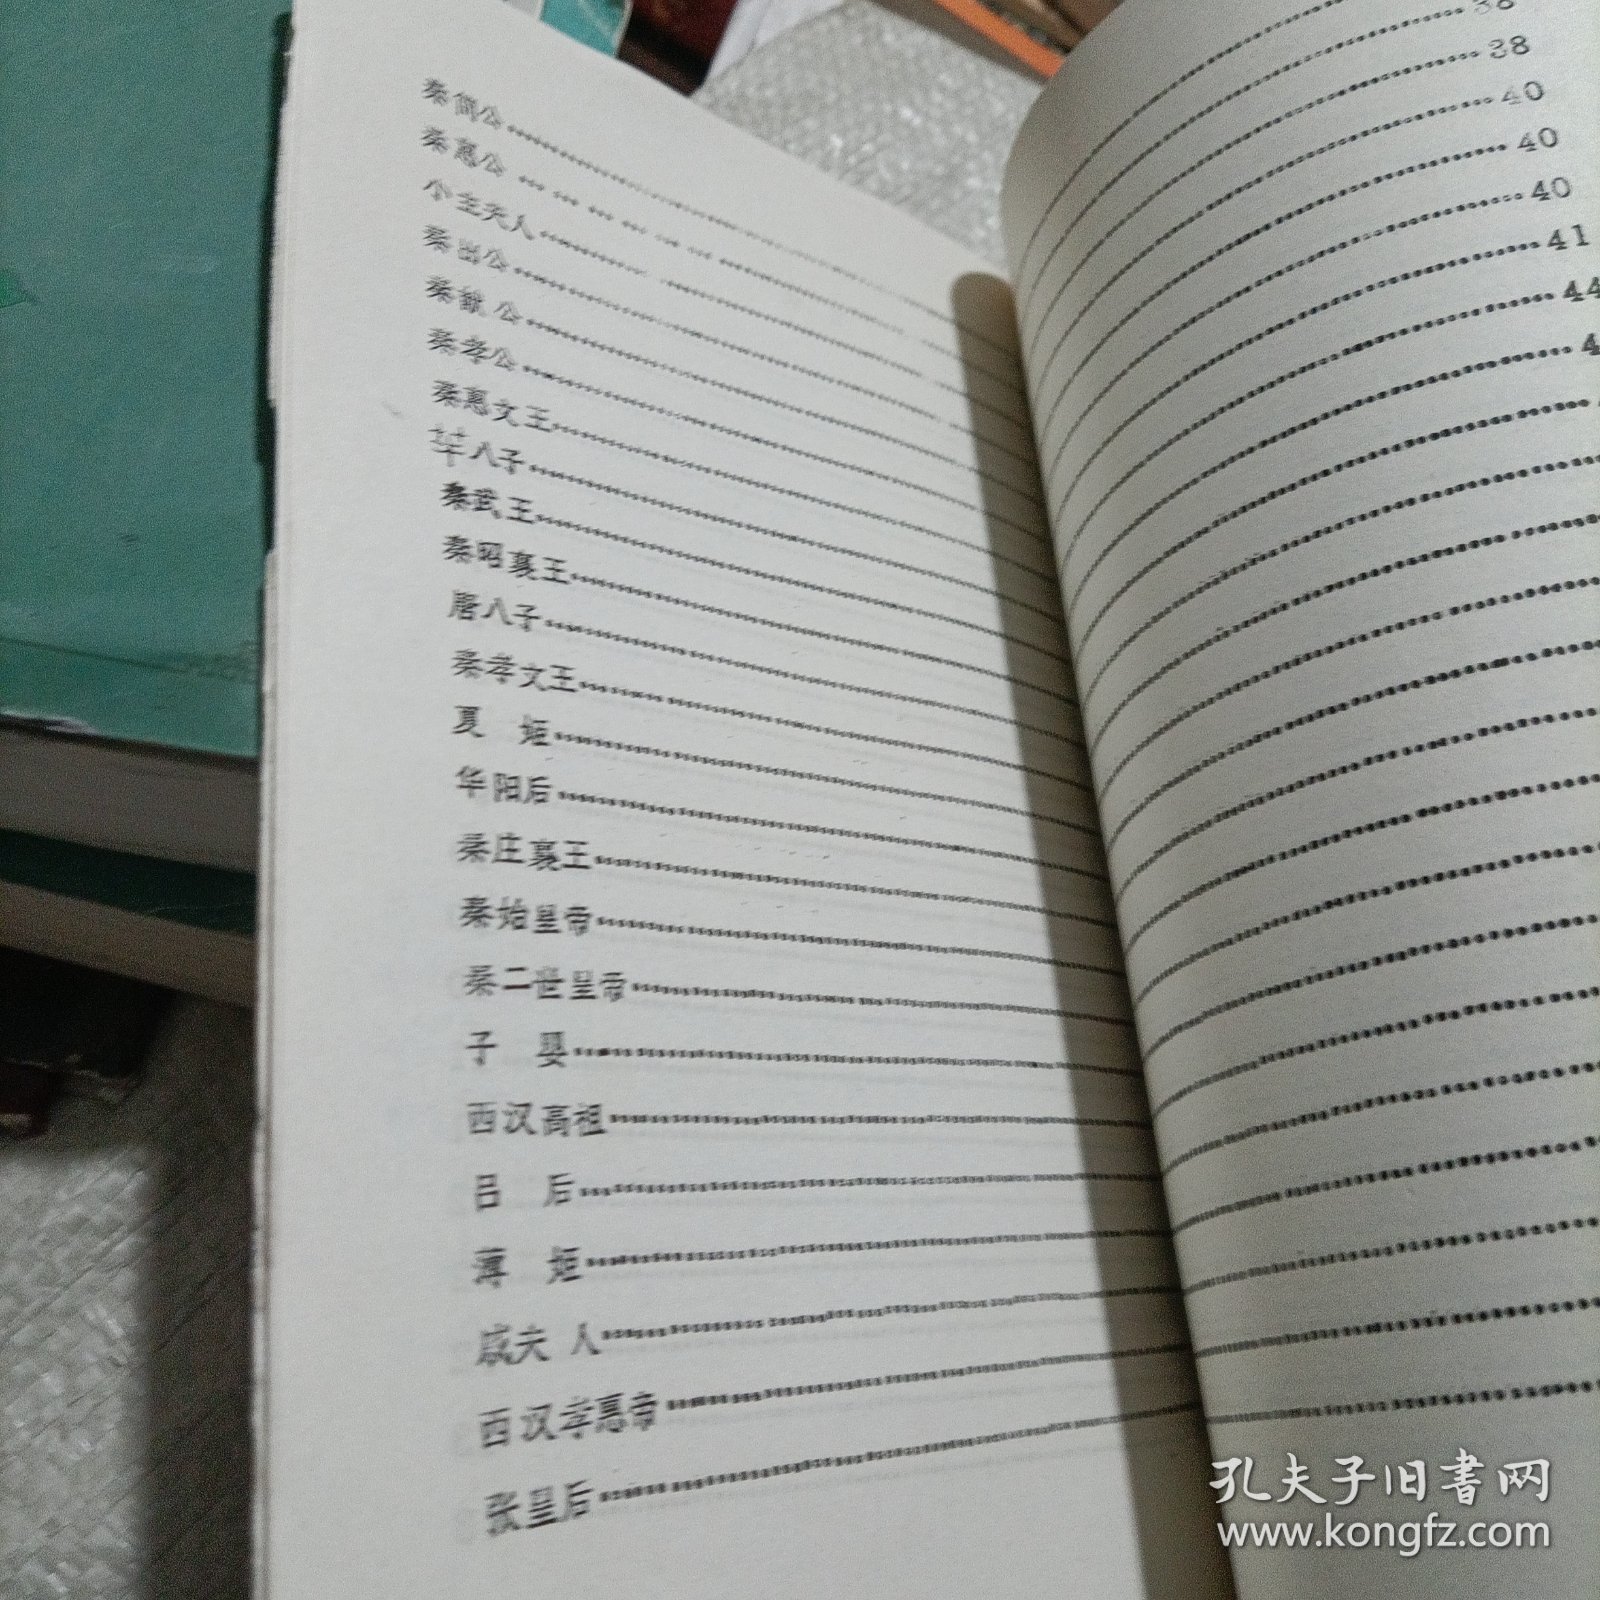 秦简公
秦惠公
小主夫人
秦出公
秦献公
秦孝公
秦惠文王
芈八子
秦武王
秦昭襄王
唐八子
秦孝文王
夏 姬
华阳后
秦庄襄王
秦始皇帝
秦二世皇帝
子 婴
西汉高祖
吕 后
薄 姬
戚夫人
西汉孝惠帝
张皇后
38
38
40
40
40
41
44
孔夫子旧书网
www.kongfz.com